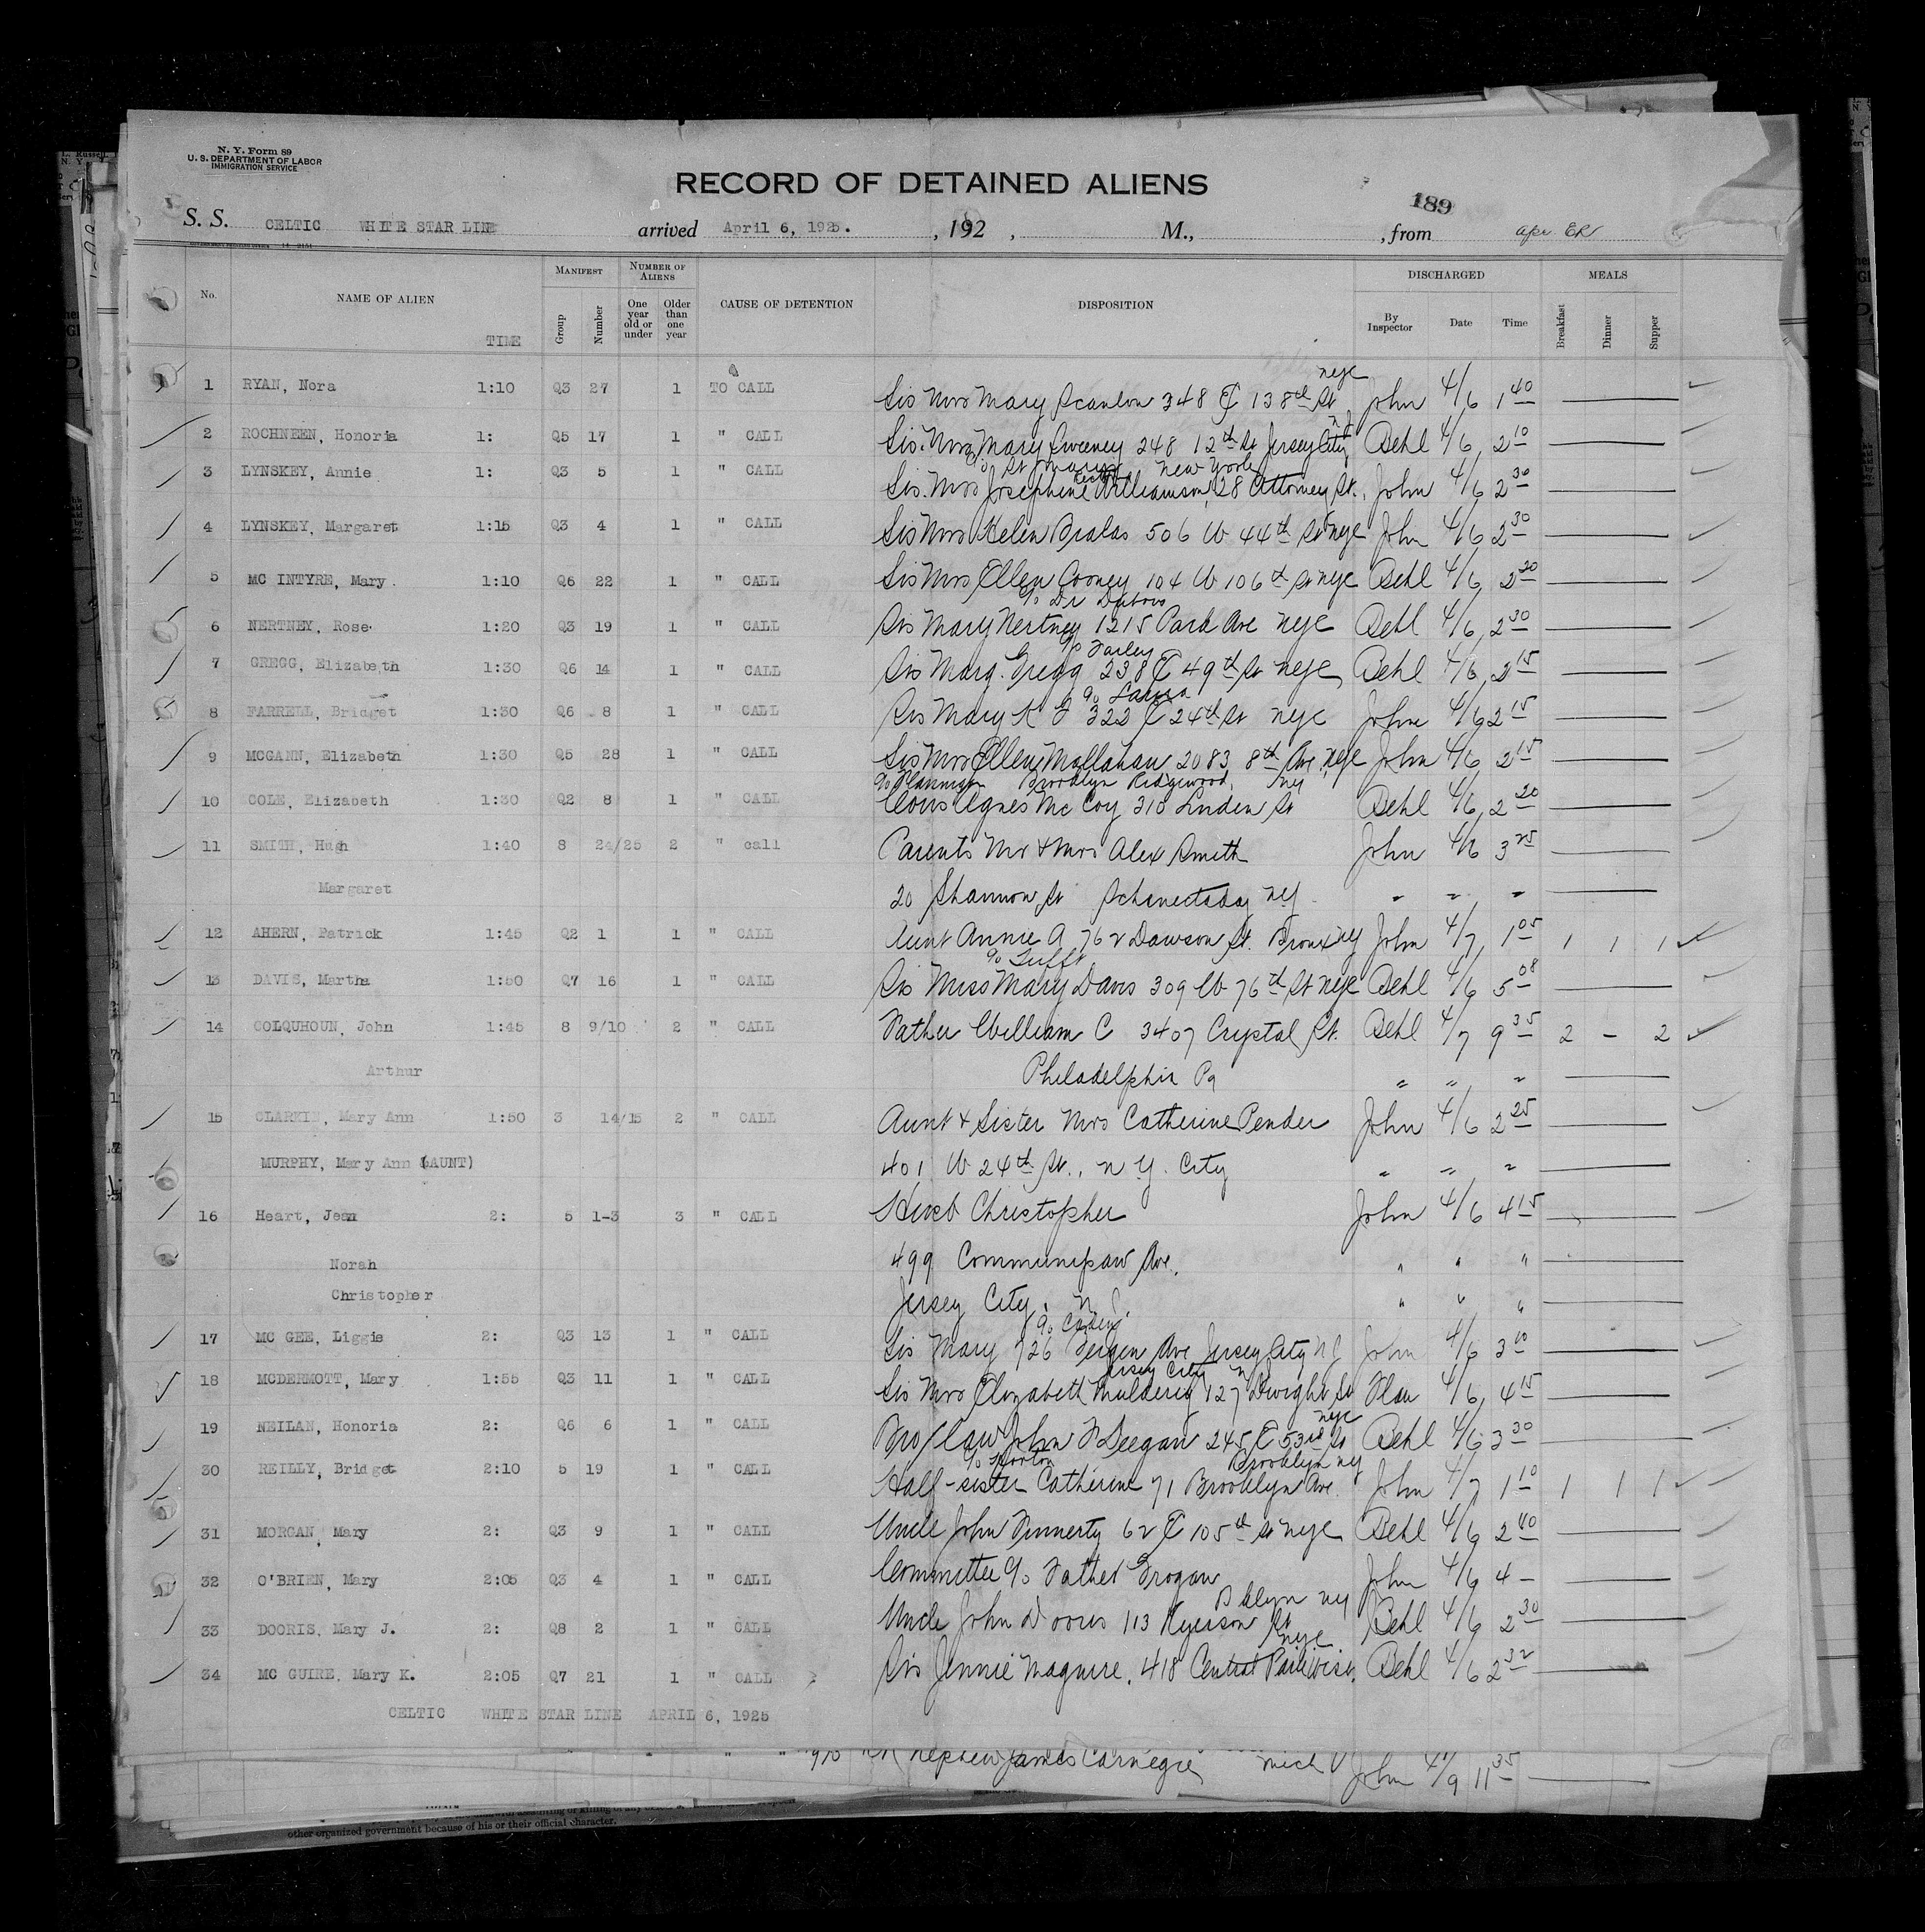 N. Y. Form 89
U. S. DEPARTMENT OF LABOR
IMMIGRATION SERVICE
RECORD OF DETAINED ALIENS
189
S. S. CELTIC WHITE STAR LINE arrived April 6, 1925. , 192 , M., , from
No. NAME OF ALIEN TIME MANIFEST Group Number NUMBER OF ALIENS One year old or under Older than one year CAUSE OF DETENTION DISPOSITION DISCHARGED By Inspector Date Time MEALS Breakfast Dinner Supper
nyc
1 RYAN, Nora 1:10 Q3 27 1 TO CALL Sis Mrs Mary Scanlon 348 E 138th St John 4/6 1 40
2 ROCHNEEN, Honoria 1: Q5 17 1 " CALL Sis. Mrs Mary Sweeney 248 12th St Jersey City Behl 4/6 2 10
New York
3 LYNSKEY, Annie 1: Q3 5 1 " CALL Sis. Mrs Josephine Williamson, 28 Attorney St. John 4/6 2 30
4 LYNSKEY, Margaret 1:15 Q3 4 1 " CALL Sis Mrs Helen 506 W 44th St nyc John 4/6 2 30
5 MC INTYRE, Mary 1:10 Q6 22 1 " CALL Sis Mrs Ellen Cooney 104 W 106th St nyc Behl 4/6 2 20
c/o Dr
6 NERTNEY, Rose 1:20 Q3 19 1 " CALL Sis Mary Nertney 1215 Park Ave nyc Behl 4/6 2 30
c/o Farley
7 GREGG, Elizabeth 1:30 Q6 14 1 " CALL Sis Marg. Gregg 238 E 49th St nyc Behl 4/6 2 15
c/o
8 FARRELL, Bridget 1:30 Q6 8 1 " CALL Sis Mary K F 322 E 24th St nyc John 4/6 2 15
9 MCGANN, Elizabeth 1:30 Q5 28 1 " CALL Sis Mrs Ellen Mollahan 2083 8th Ave nyc John 4/6 2 15
c/o Brooklyn Ridgewood, ny
10 COLE, Elizabeth 1:30 Q2 8 1 " CALL Cous Agnes McCoy 310 Linden St Behl 4/6 2 20
11 SMITH, Hugh 1:40 8 24/25 2 " call Parents Mr & Mrs Alex Smith John 4/6 3 25
Margaret 20 Shannon St Schenectaday ny " " "
12 AHERN, Patrick 1:45 Q2 1 1 " CALL Aunt Annie A 762 Dawson St. Bronx ny John 4/7 1 05 1 1 1
c/o Tufft
13 DAVIS, Martha 1:50 Q7 16 1 " CALL Sis Miss Mary Davis 309 W 76th St nyc Behl 4/6 5 08
14 COLQUHOUN, John 1:45 8 9/10 2 " CALL Father William C 3407 Crystal St. Behl 4/7 9 35 2 - 2
Arthur Philadelphia Pa " " "
15 CLARKIN, Mary Ann 1:50 3 14/15 2 " CALL Aunt & Sister Mrs Catherine Pender John 4/6 2 25
MURPHY, Mary Ann (AUNT) 401 W 24th St., N. Y. City " " "
16 Heart, Jean 2: 5 1-3 3 " CALL Husb Christopher John 4/6 4 15
Norah 499 Communipaw Ave. " " "
Christopher Jersey City. N J. " " "
c/o
17 MC GEE, Liggie 2: Q3 13 1 " CALL Sis Mary 726 Bergen Ave Jersey City NJ John 4/6 3 10
Jersey City N
18 MCDERMOTT, Mary 1:55 Q3 11 1 " CALL Sis Mrs Elizabeth Mulderig 127 Dwight St 4/6 4 15
nyc
19 NEILAN, Honoria 2: Q6 6 1 " CALL Bro/law John F Deegan 245 E 53rd St Behl 4/6 3 30
c/o Horton Brooklyn ny
30 REILLY, Bridget 2:10 5 19 1 " CALL Half-sister Catherine 71 Brooklyn Ave. John 4/7 1 10 1 1 1
31 MORGAN, Mary 2: Q3 9 1 " CALL Uncle John Finnerty 62 E 105th St nyc Behl 4/6 2 40
32 O'BRIEN, Mary 2:05 Q3 4 1 " CALL Committee c/o Father Grogan John 4/6 4 -
Bklyn ny
33 DOORIS, Mary J. 2: Q8 2 1 " CALL Uncle John Dooris 113 Ryerson St Behl 4/6 2 30
nyc
34 MC GUIRE, Mary K. 2:05 Q7 21 1 " CALL Sis Jennie Maguire, 418 Central Park West, Behl 4/6 2 32
CELTIC WHITE STAR LINE APRIL 6, 1925
nephew James Carnegie mich John 4/9 11 35
other organized government because of his or their official character.